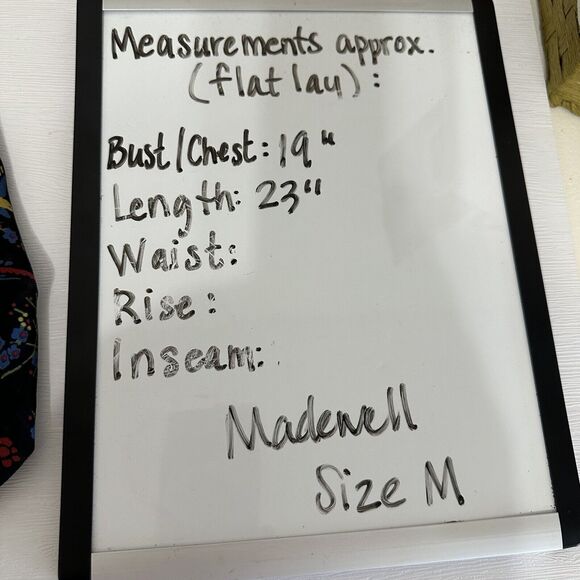 Measurements approx.
(flat lay) :
Bust/Chest: 19"
Length: 23"
Waist:
Rise:
Inseam:
Madewell
Size M